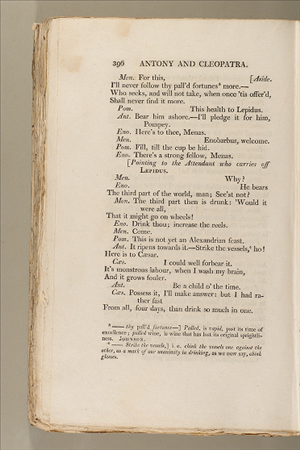 396 ANTONY AND CLEOPATRA.
Men. For this, [Aside.
I'll never follow thy pall'd fortunes* more.—
Who seeks, and will not take, when once 'tis offer'd,
Shall never find it more.
Pom. This health to Lepidus.
Ant. Bear him ashore.—I'll pledge it for him,
Pompey.
Eno. Here's to thee, Menas.
Men. Enobarbus, welcome.
Pom. Fill, till the cup be hid.
Eno. There's a strong fellow, Menas.
[Pointing to the Attendant who carries off
LEPIDUS.
Men. Why?
Eno. He bears
The third part of the world, man; See'st not?
Men. The third part then is drunk: 'Would it
were all,
That it might go on wheels!
Eno. Drink thou; increase the reels.
Men. Come.
Pom. This is not yet an Alexandrian feast.
Ant. It ripens towards it.—Strike the vessels,* ho!
Here is to Cæsar.
Cæs. I could well forbear it.
It's monstrous labour, when I wash my brain,
And it grows fouler.
Ant. Be a child o' the time.
Cæs. Possess it, I'll make answer: but I had ra-
ther fast
From all, four days, than drink so much in one.
* —— thy pall'd fortunes—] Palled, is vapid, past its time of
excellence; palled wine, is wine that has lost its original sprightli-
ness. JOHNSON.
* —— Strike the vessels,] i. e. chink the vessels one against the
other, as a mark of our unanimity in drinking, as we now say, chink
glasses.